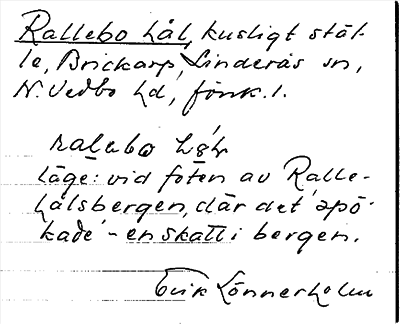 Rallebo hål, kusligt stäl-
le, Brickarp, Linderås sn,
N. Vedbo hd, Jönk. l.
ralebo
läge: vid foten av Ralle-
hålsbergen, där det 'spö-
kade' - en skatt i bergen.
Erik Lönnerholm